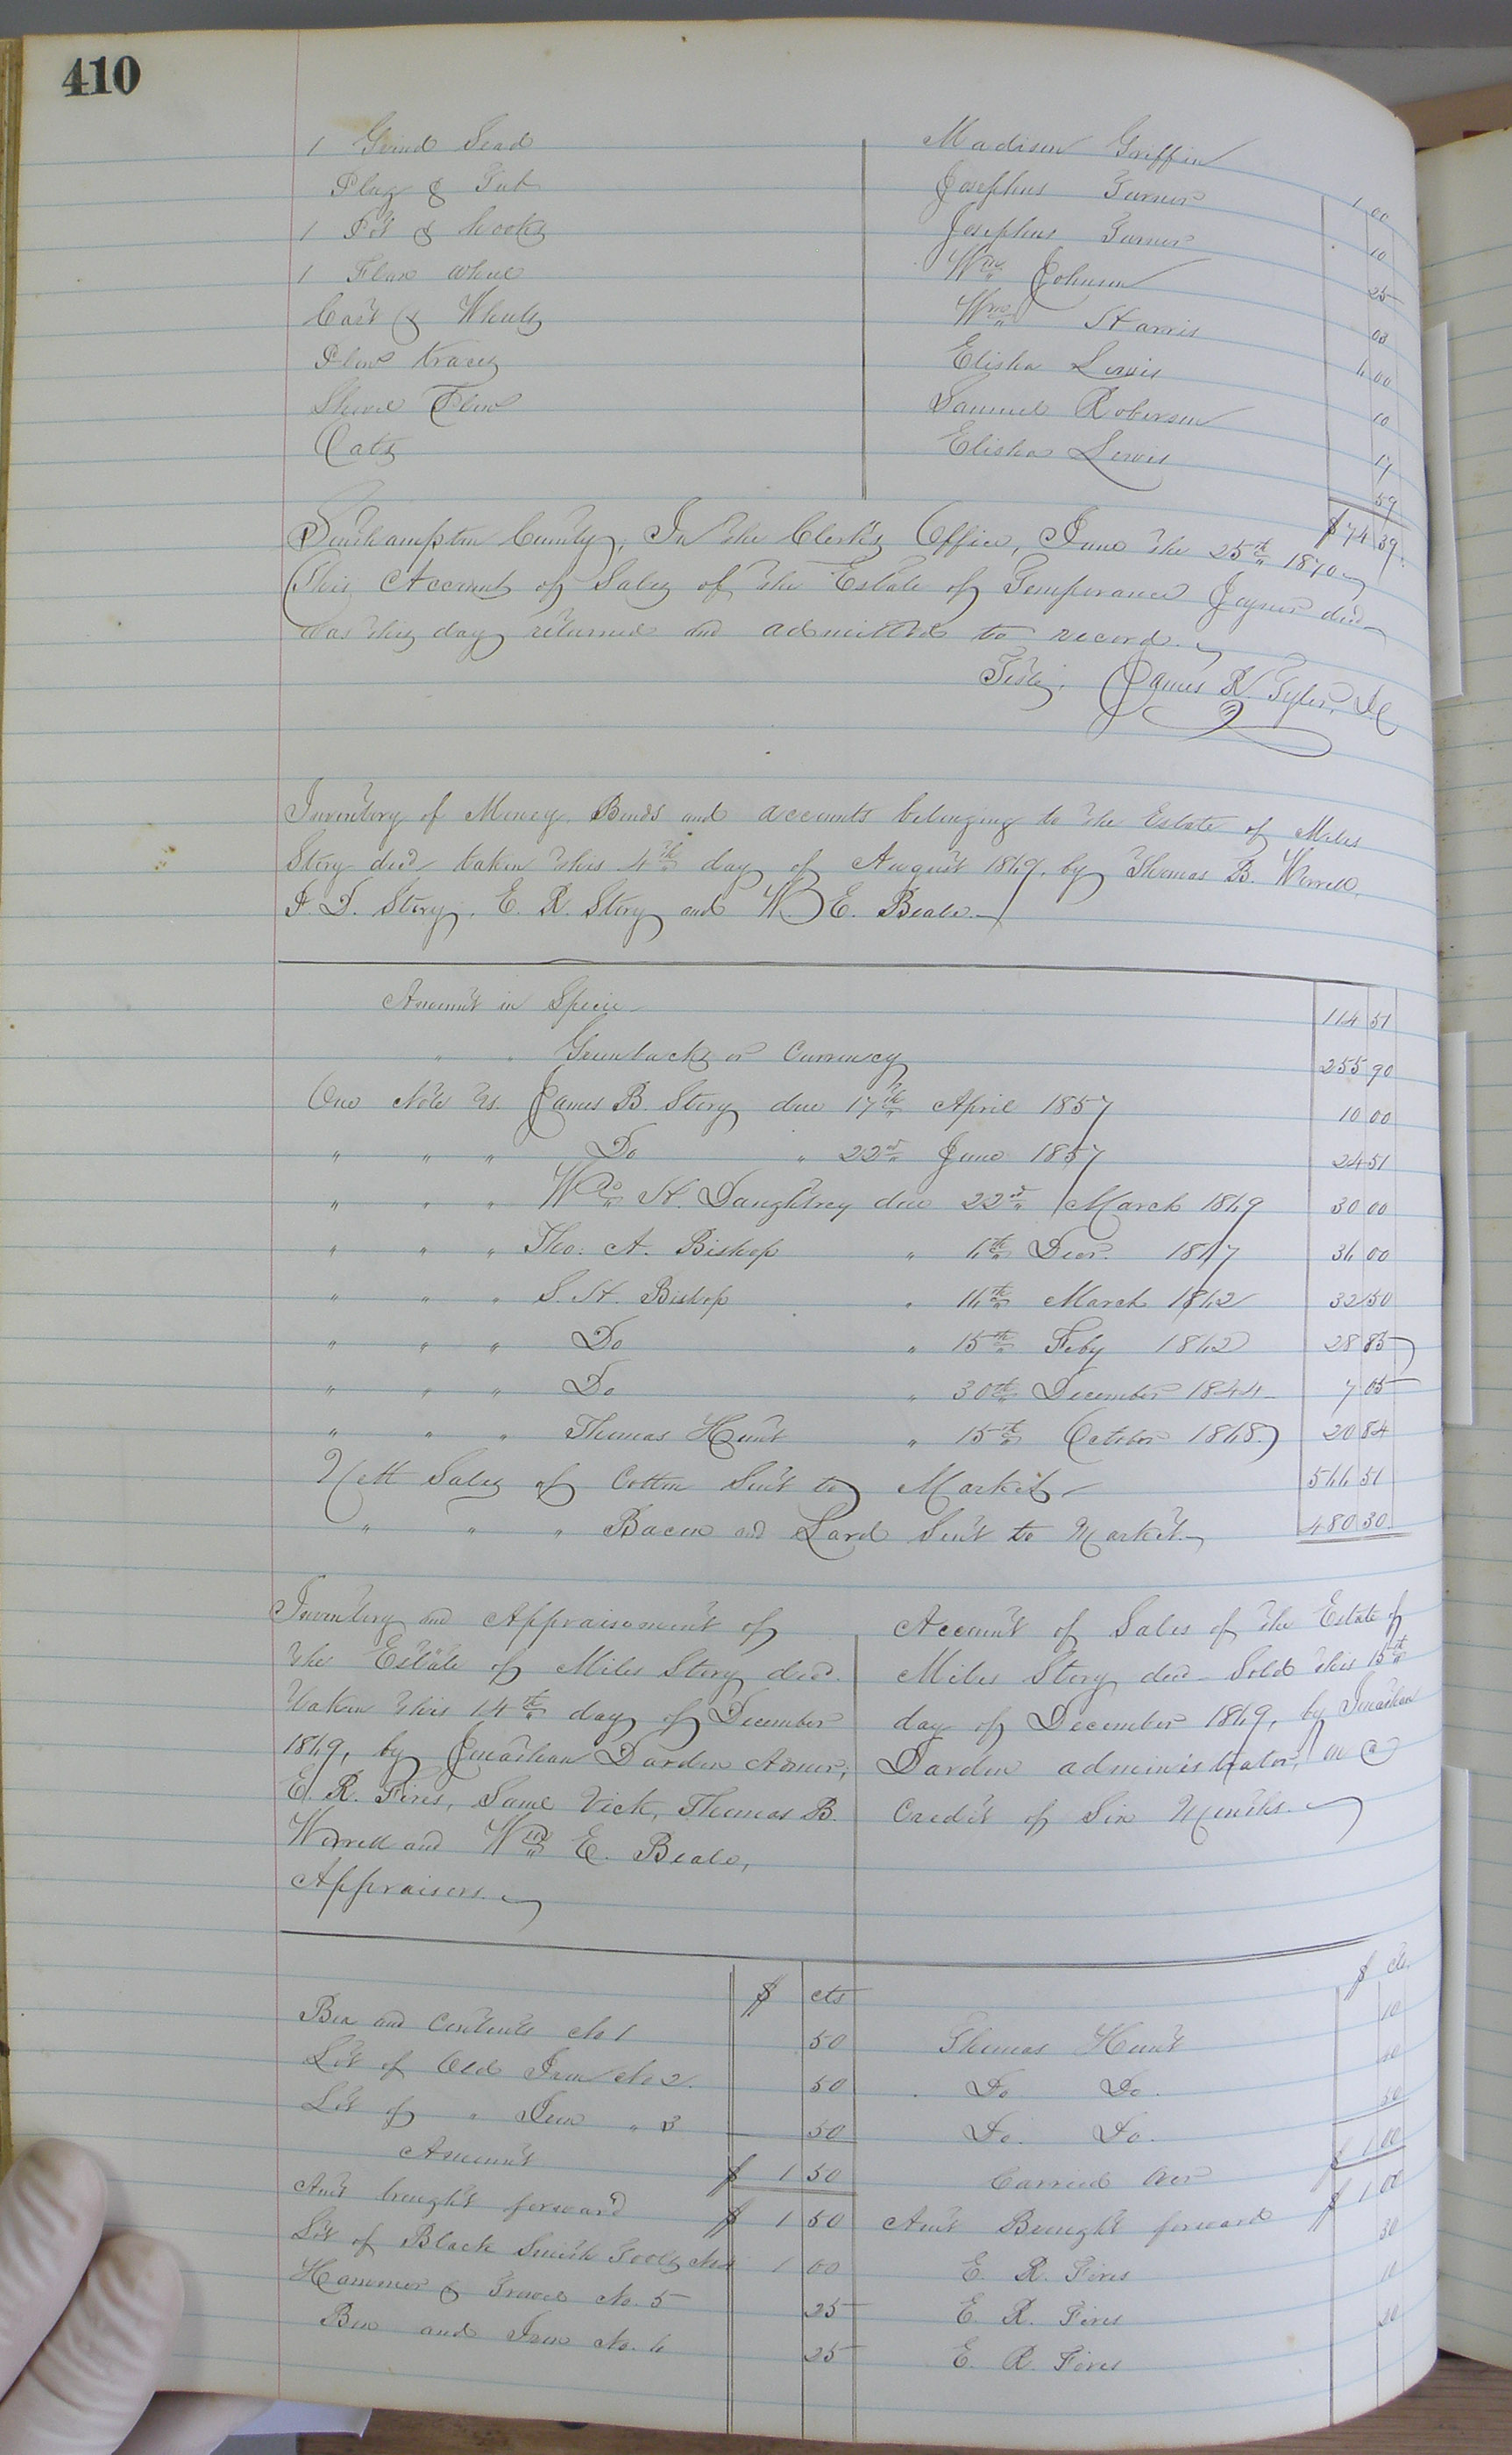 410
1 Grind Sead Madison Griffin 1 00
Plug & Tub Josephus Turner 10
1 Pot & hooks Josephus Turner 25
1 Flax wheel Wm Johnson 03
Cart & Wheels Wm Harris 6 00
Plow traces Elisha Lewis 10
Shovel Plow Samuel Roberson 17
Oats Elisha Lewis 59
$74 39.
Southampton County, In the Clerk's Office, June the 25th 1870
This Account of Sales of the Estate of Temperance Joyner decd
was this day returned and admitted to record.
Teste, James R. Tyler, D.C
Inventory of Money, Bonds and accounts belonging to the Estate of Miles
Story decd taken this 4th day of August 1869, by Thomas B. Worrell,
J. D. Story, E. R. Story and W. E. Beale.
Amount in Specie 114 51
" " Greenbacks or Currency 255 90
One Note vs. James B. Story due 17th April 1857 10 00
" " " Do " 22nd June 1857 24 51
" " " Wm H. Daughtrey due 22nd March 1869 30 00
" " " Tho: A. Bishop " 6th Decr. 1867 36 00
" " " S. H. Bishop " 16th March 1862 32 50
" " " Do " 15th Feby 1862 28 85
" " " Do " 30th December 1844 7 05
" " " Thomas Hunt " 15th October 1868 20 84
Nett Sales of Cotton Sent to Market 566 51
" " " Bacon and Lard Sent to Market. 480 30.
Inventory and Appraisement of
the Estate of Miles Story decd.
taken this 14th day of December
1869, by Jonathan Darden Admr,
E. R. Fires, Saml Vick, Thomas B.
Worrell and Wm E. Beale,
Appraisers.
Account of Sales of the Estate of
Miles Story decd Sold this 15th
day of December 1869, by Jonathan
Darden administrator, on a
Credit of Six Months.
$ cts $ cts.
Box and Contents No 1 50 Thomas Hunt 10
Lot of Old Iron No 2. 50 Do Do. 40
Lot of " Iron " 3 50 Do. Do. 50
Amount $ 1 50 Carried Over $ 1 00
Amt brought forward $ 1 50 Amt Brought forward $ 1 00
Lot of Black Smith Tools No 4 1 00 E. R. Fires 30
Hammer & Trowel No. 5 25 E. R. Fires 10
Box and Iron No. 6 25 E. R. Fires 20